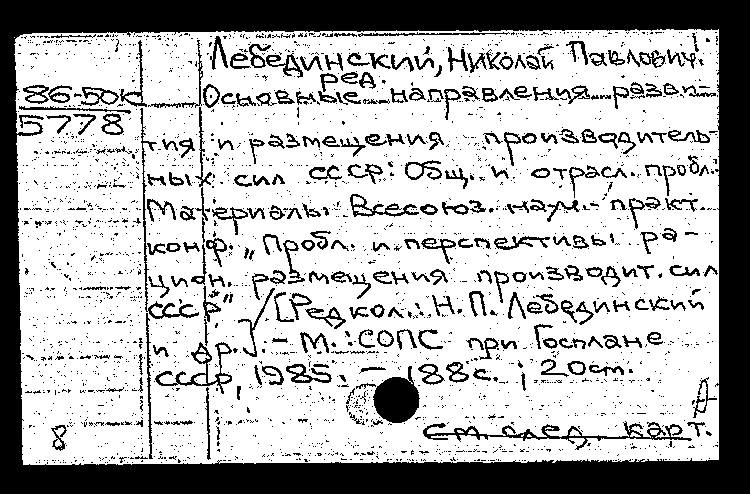 Лебединский, Николай Павлович.
ред.
86-50к
5778
Основные направления разви-
тия и размещения производитель-
ных сил СССР: Общ. и отрасл. пробл.:
Материалы Всесоюз. науч.-практ.
конф. „Пробл. и перспективы ра-
цион. размещения производит. сил
СССР" / [Редкол.: Н. П. Лебединский
и др.]. - М.: СОПС при Госплане
СССР, 1985. - 188с. ; 20см.
См. след. карт.
8